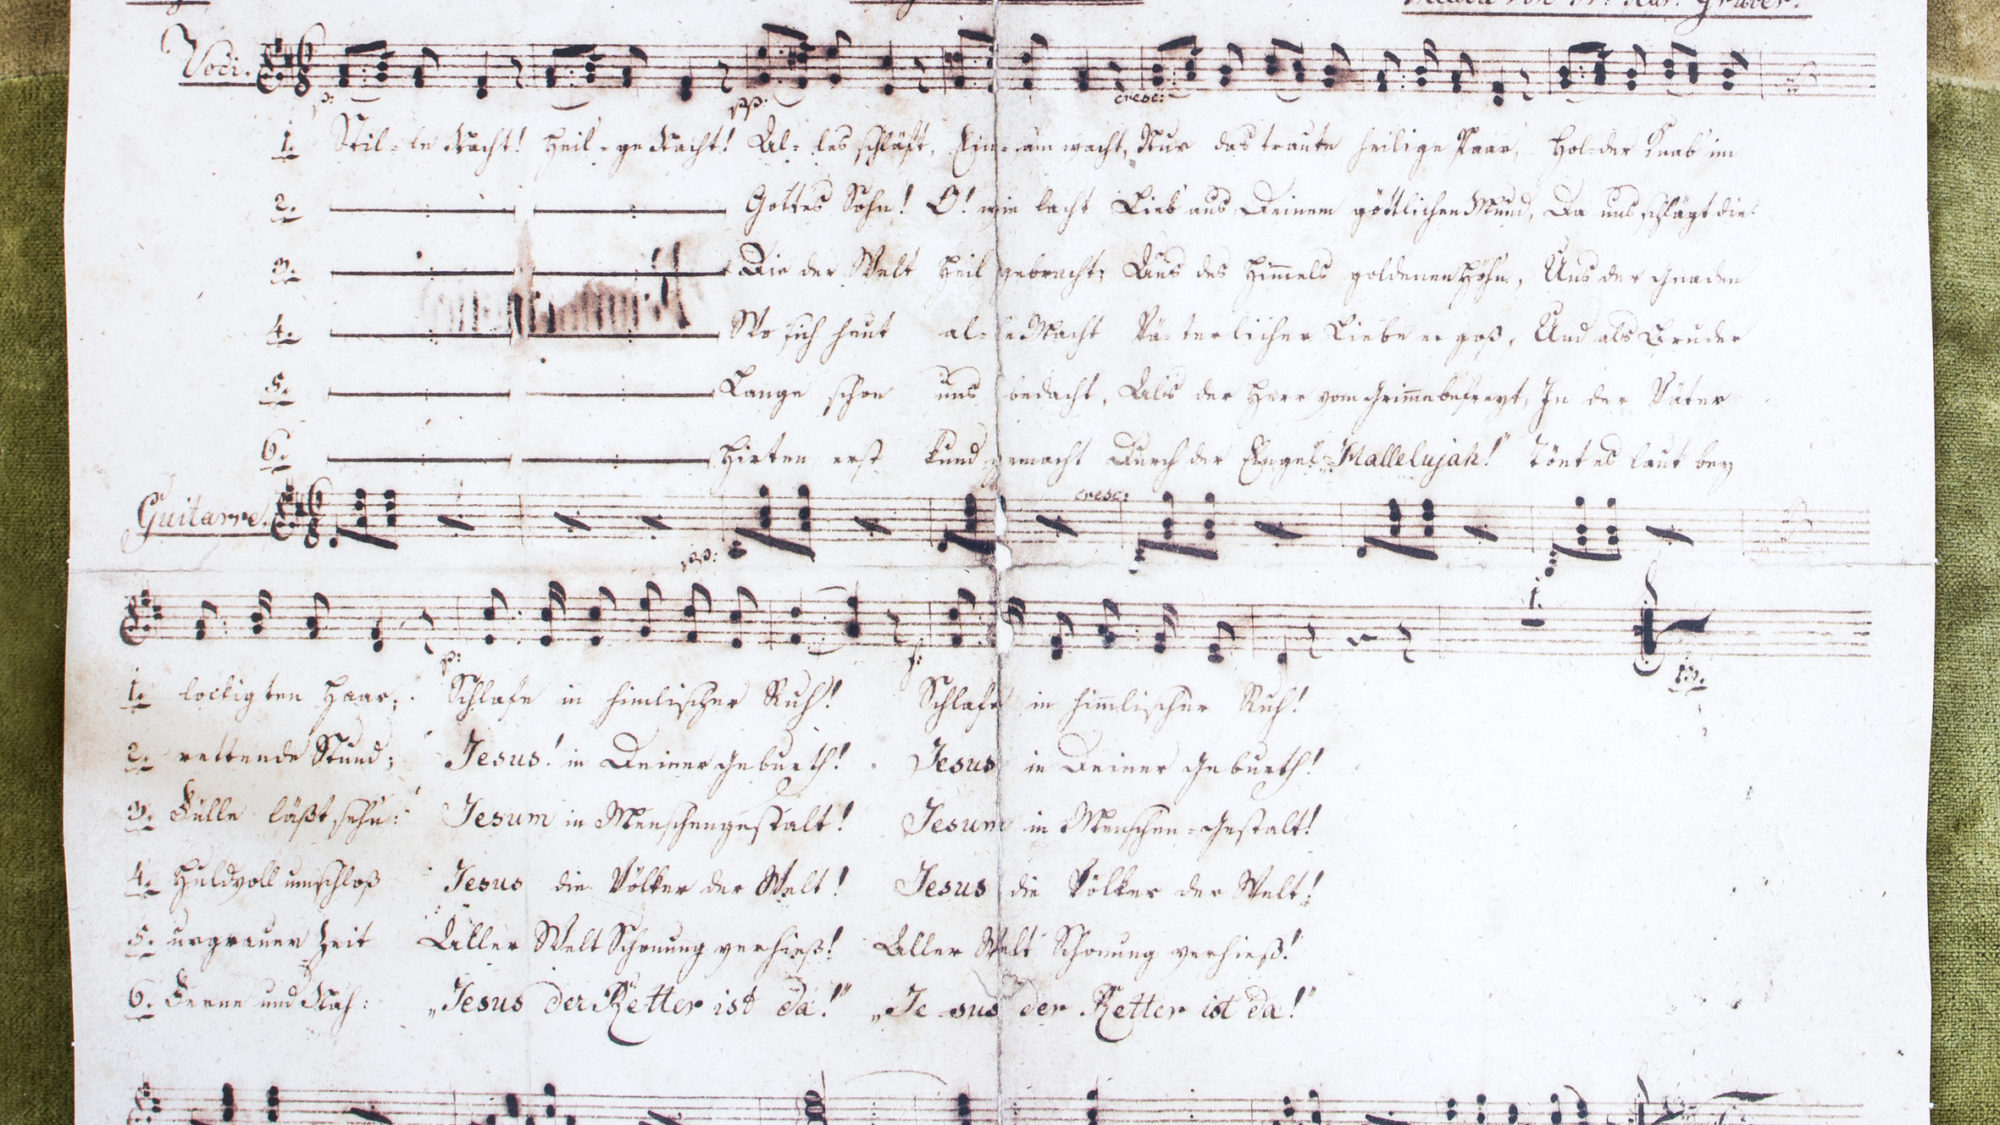 Voci.
p:
pp:
cresc:
1. Stil-le Nacht! Heil-ge Nacht! Al-les schläft, Ein-sam wacht, Nur das traute heilige Paar, Hol-der Knab' im
2. Gottes Sohn! O! wie lacht Lieb' aus Deinem göttlichen Mund, Da uns schlägt die
3. Die der Welt Heil gebracht; Aus des Him̅els goldenen Höhn, Uns der Gnaden
4. Wo sich heut al-le Macht Vä-terlicher Liebe ergoß, Und als Bruder
5. Lange schon uns bedacht, Als der Herr vom Grim̅e befreyt, In der Väter
6. Hirten erst kund gemacht Durch der Engel „Hallelujah!" Tönt es laut bey
Guitarre.
pp:
cresc:
p:
f:
1.
1. lockigten Haar; Schlafe in himlischer Ruh! Schlafe in him̅lischer Ruh!
2. rettende Stund; Jesus! in Deiner Geburth! Jesus in Deiner Geburth!
3. Fülle läßt sehn: Jesum in Menschengestalt! Jesum in Menschen-Gestalt!
4. Huldvoll umschloß Jesus die Völker der Welt! Jesus die Völker der Welt!
5. urgrauer Zeit Aller Welt Schonung verhieß! Aller Welt Schonung verhieß!
6. Ferne und Nah: „Jesus der Retter ist da!" „Je-sus der Retter ist da!"